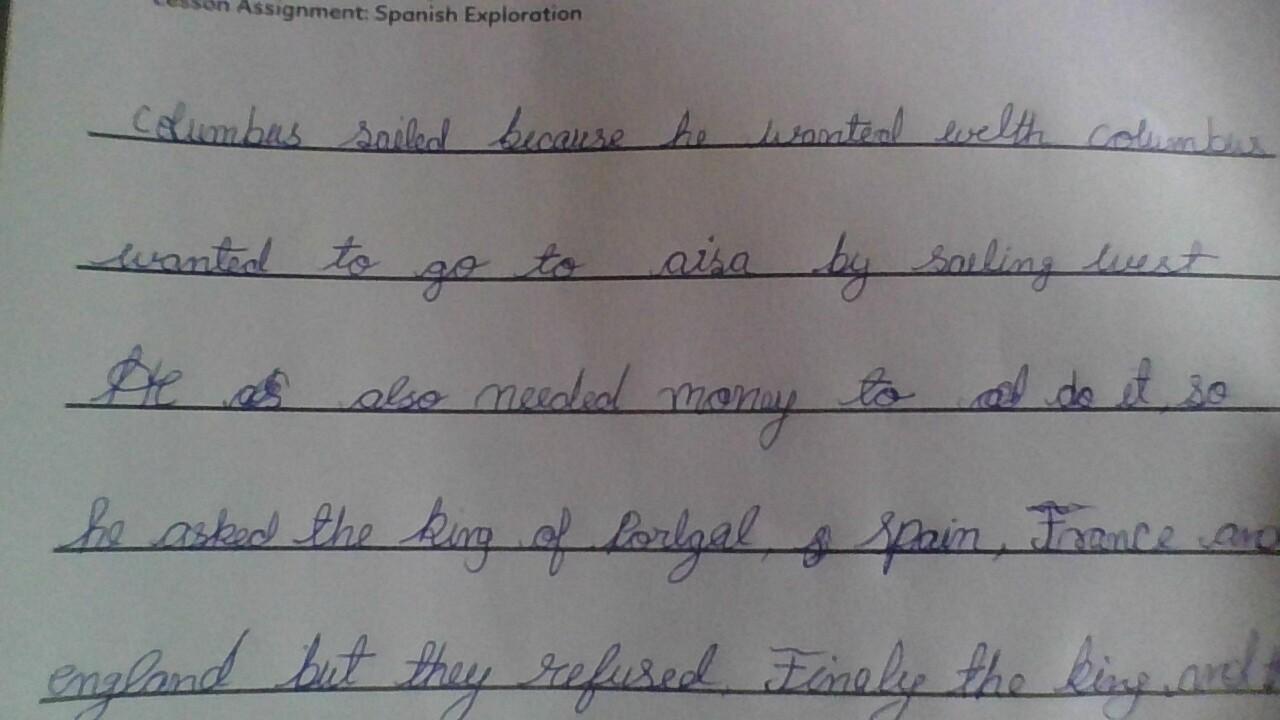 Lesson Assignment: Spanish Exploration
Columbus sailed because he wanted welth columbus
wanted to go to aisa by sailing west
He as also needed money to do it so
he asked the king of Porlgal, Spain, France and
england but they refused. Finaly the king and